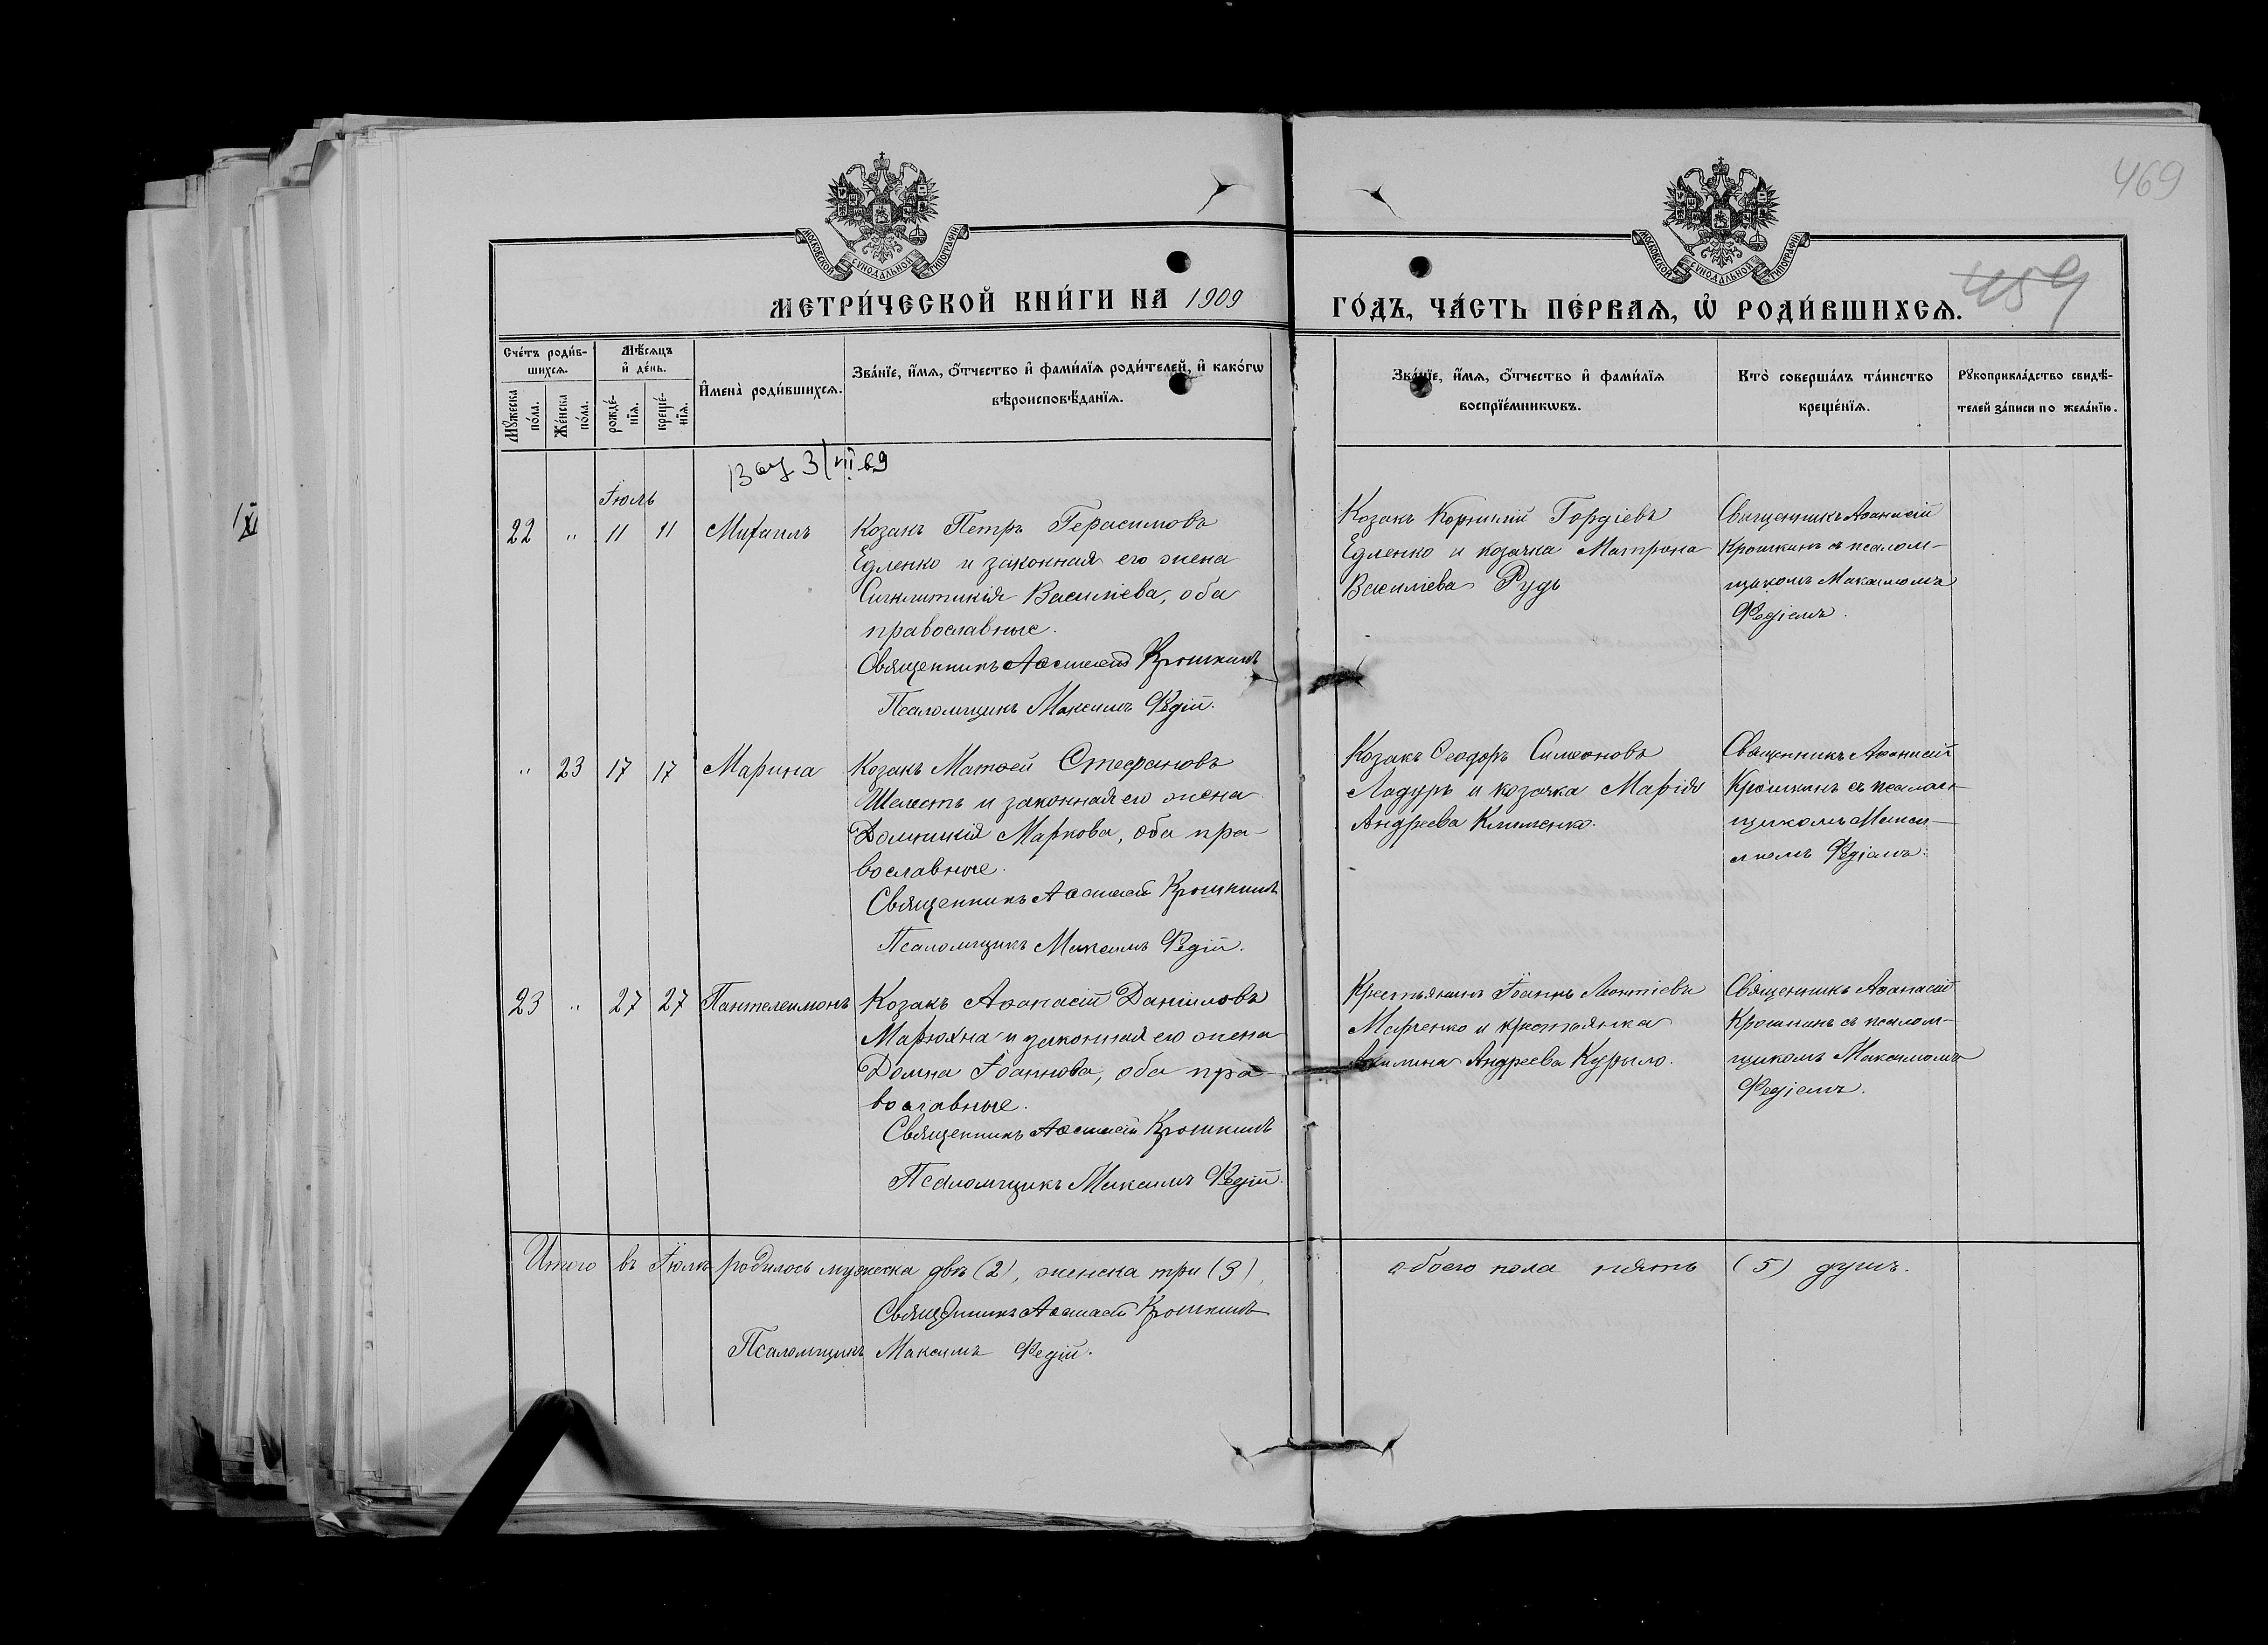 469
МОСКОВСКОЙ СѴНОДАЛЬНОЙ ТИПОГРАФІИ
МОСКОВСКОЙ СѴНОДАЛЬНОЙ ТИПОГРАФІИ
МЕТРИ́ЧЕСКОЙ КНИ́ГИ НА 1909
ГО́ДЪ, ЧА́СТЬ ПЕ́РВАѦ, Ѡ҆ РОДИ́ВШИХСѦ.
459
Сче́тъ роди́в-
шихсѧ.
Мꙋ́жеска по́ла.
Же́нска по́ла.
Мѣ́сѧцъ
и҆ де́нь.
рожде́-
нїѧ.
креще́-
нїѧ.
И҆мена̀ роди́вшихсѧ.
Зва́нїе, и҆́мѧ, ѻ҆́тчество и҆ фами́лїѧ роди́телей, и҆ како́гѡ
вѣроисповѣ́данїѧ.
Зва́нїе, и҆́мѧ, ѻ҆́тчество и҆ фами́лїѧ
воспрїе́мникѡвъ.
Кто̀ соверша́лъ та́инство
креще́нїѧ.
Рꙋкоприкла́дство свидѣ́-
телей за́писи по жела́нїю.
3/VII 69
Іюль
22 " 11 11 Михаилъ
Козакъ Петръ Герасимовъ
Едленко и законная его жена
Сигклитикія Василіева, оба
православные.
Священникъ Аѳанасій Крошкинъ
Псаломщикъ Максимъ Федій.
Козакъ Корнилій Гордіевъ
Едленко и козачка Матрона
Василіева Рудь
Священникъ Аѳанасій
Крошкинъ съ псалом-
щикомъ Максимомъ
Федіемъ.
" 23 17 17 Марина
Козакъ Матѳей Стефановъ
Шелестъ и законная его жена
Домникія Маркова, оба пра-
вославные.
Священникъ Аѳанасій Крошкинъ
Псаломщикъ Максимъ Федій.
Козакъ Ѳеодоръ Симеоновъ
Ладуръ и козачка Марія
Андреева Клименко.
Священникъ Аѳанасій
Крошкинъ съ псалом-
щикомъ Макси-
момъ Федіемъ.
23 " 27 27 Пантелеимонъ
Козакъ Аѳанасій Даніиловъ
Марюхна и законная его жена
Домна Іоаннова, оба пра-
вославные.
Священникъ Аѳанасій Крошкинъ
Псаломщикъ Максимъ Федій.
Крестьянинъ Іоаннъ Леонтіевъ
Марченко и крестьянка
Акилина Андреева Курыло.
Священникъ Аѳанасій
Крошкинъ съ псалом-
щикомъ Максимомъ
Федіемъ.
Итого въ Іюлѣ родилось мужеска двѣ (2), женска три (3),
обоего пола пять (5) душъ.
Священникъ Аѳанасій Крошкинъ
Псаломщикъ Максимъ Федій.